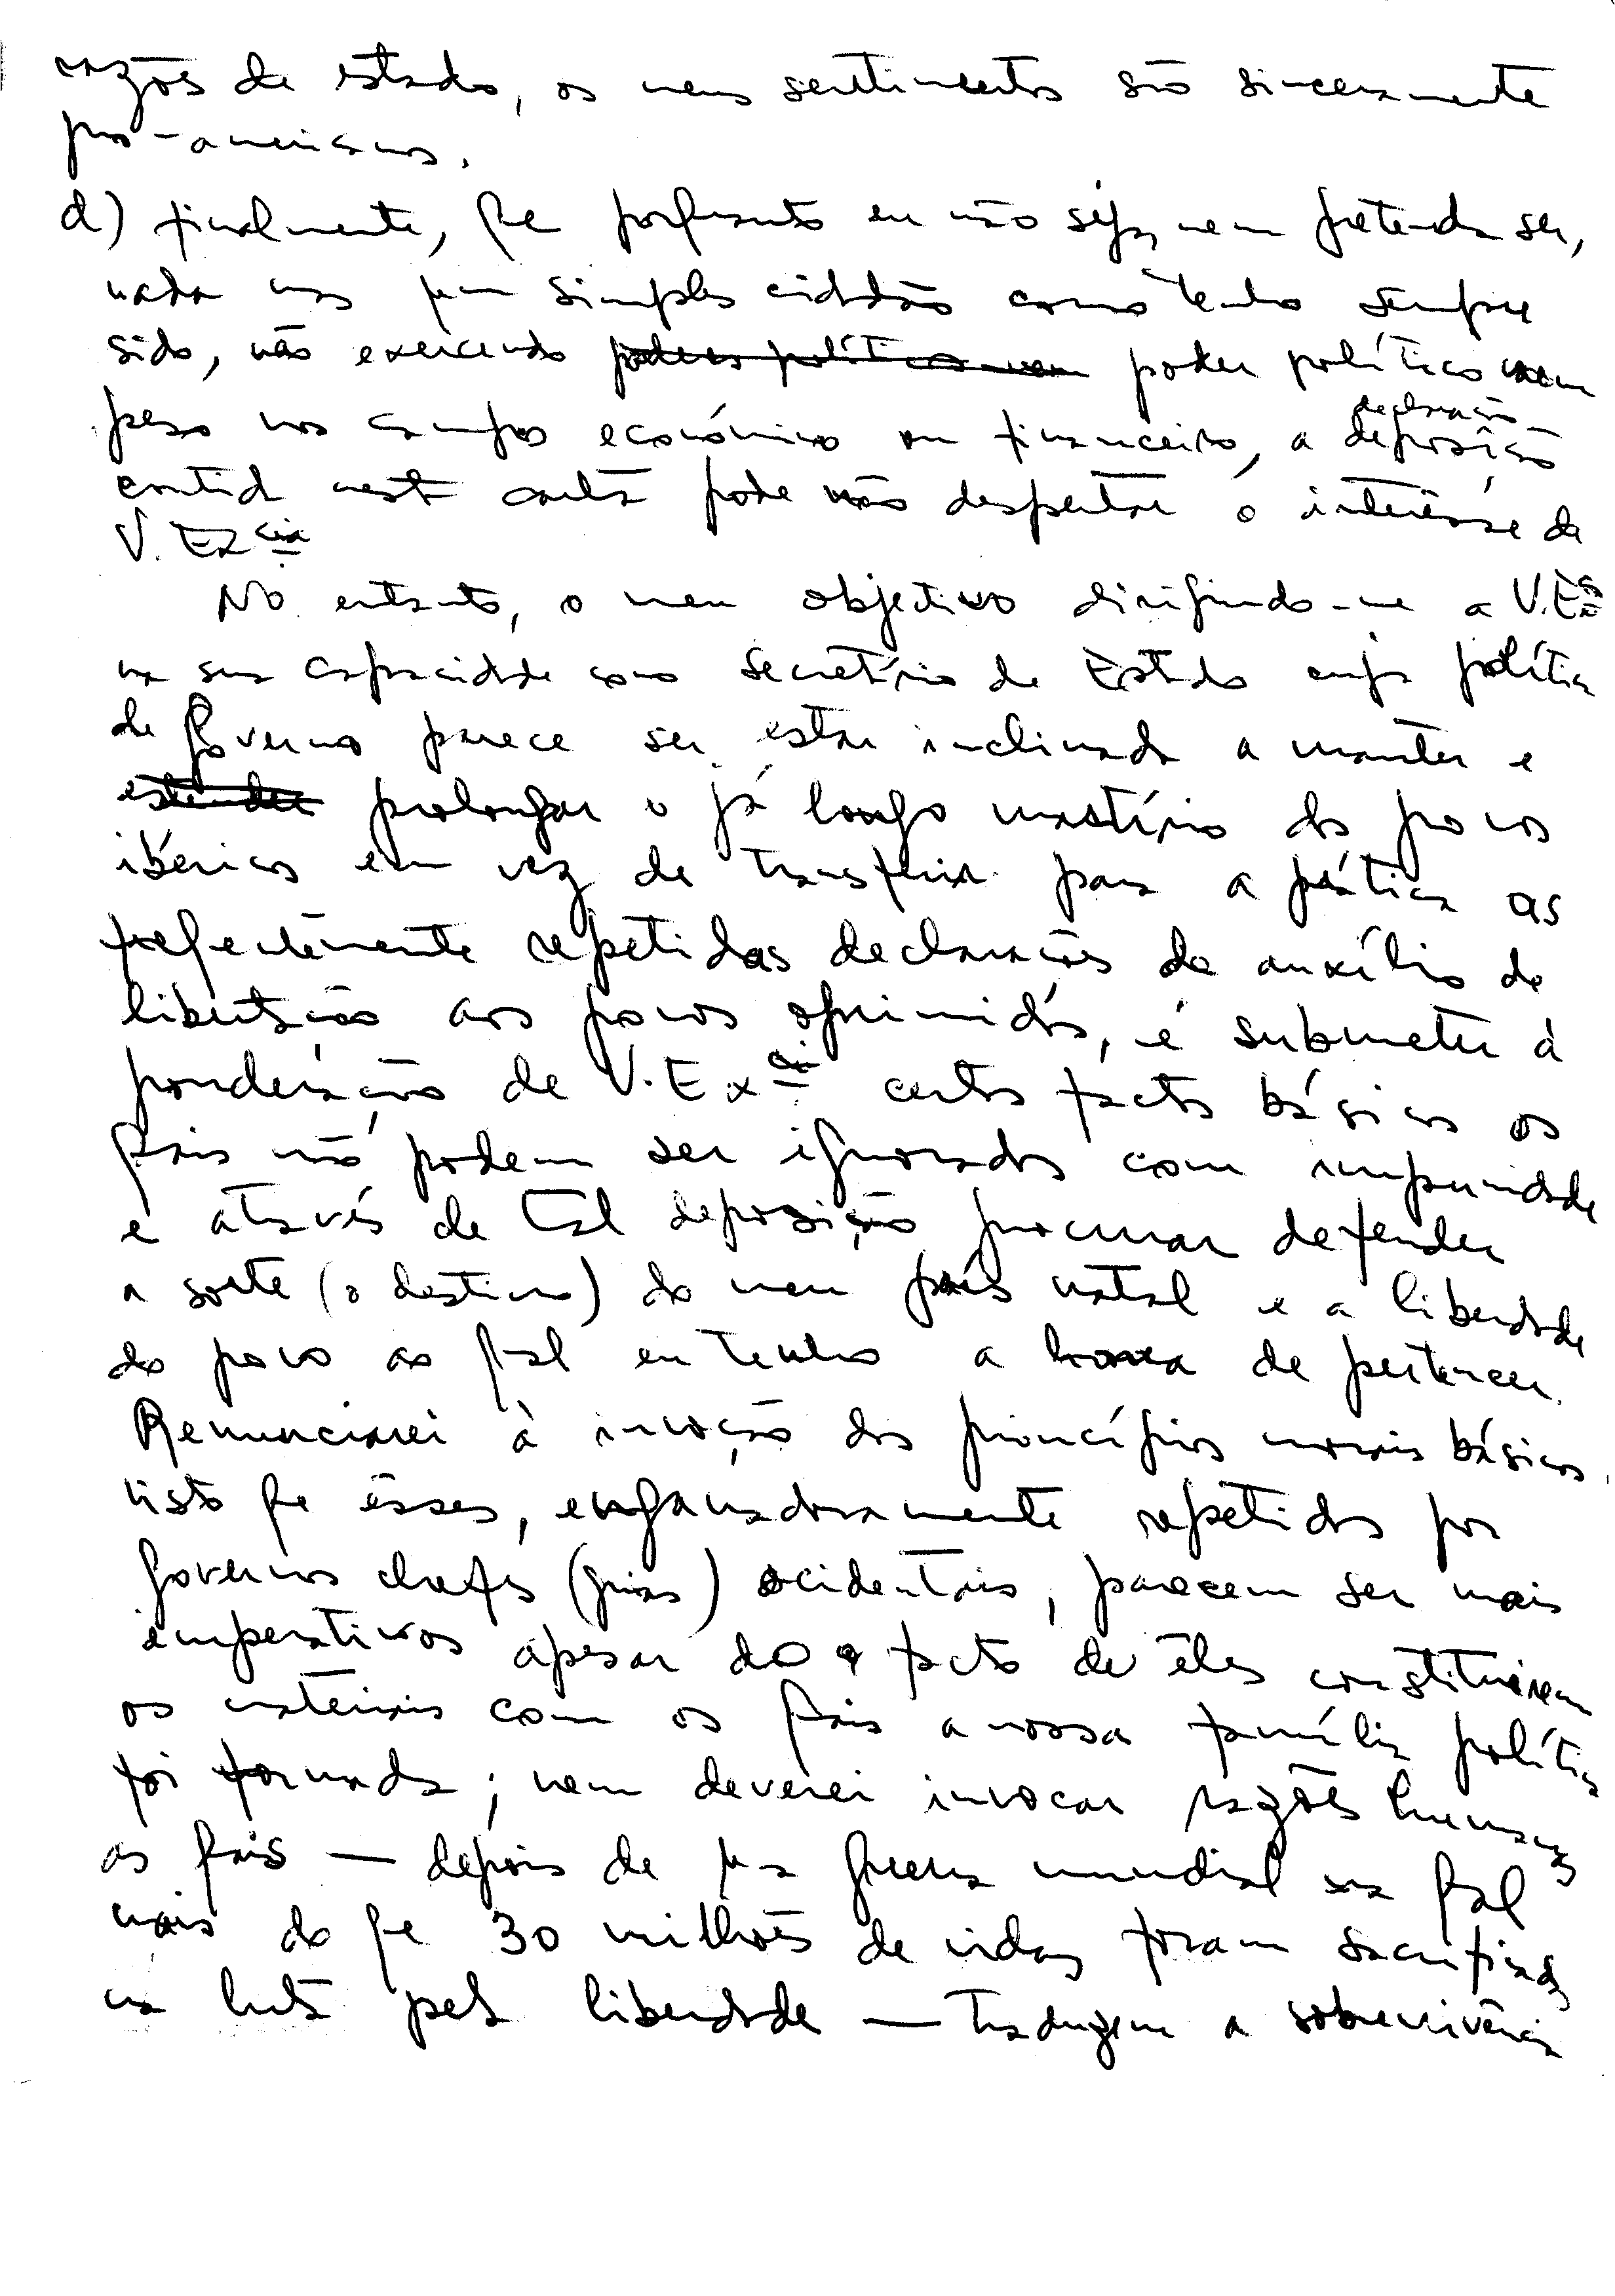 razões de estado, os meus sentimentos são sinceramente
pro-americanos.
d) finalmente, que porquanto eu não seja, nem pretenda ser,
nada mas um simples cidadão como tenho sempre
sido, não exercendo poderes políticos nem poder político nem
peso nos campos económico ou financeiro, a deposição declaração
contida nesta carta pode não despertar o interêsse de
V. Excia
No entanto, o meu objectivo dirigindo-me a V. Exa
na sua capacidade como Secretário de Estado cuja política
de Governo parece ser estar inclinada a manter e
estender prolongar o já longo martírio dos povos
ibéricos em vez de transferir para a prática as
frequentemente repetidas declarações de auxílio de
libertação aos povos oprimidos, é submeter à
ponderação de V. Excia certos factos básicos os
quais não podem ser ignorados com impunidade
e através de tal deposição procurar defender
a sorte (o destino) do meu país natal e a liberdade
do povo ao qual eu tenho a honra de pertencer.
Renunciarei à invocação dos princípios morais básicos,
visto que êsses, enganadoramente repetidos por
governos chefes (guias) ocidentais, parecem ser mais
imperativos apesar do facto de êles constituírem
os materiais com os quais a nossa família política
foi formada; nem deverei invocar razões humanas
as quais — depois de uma guerra mundial na qual
mais do que 30 milhões de vidas foram sacrificadas
na luta pela liberdade — traduzem a sobrevivência